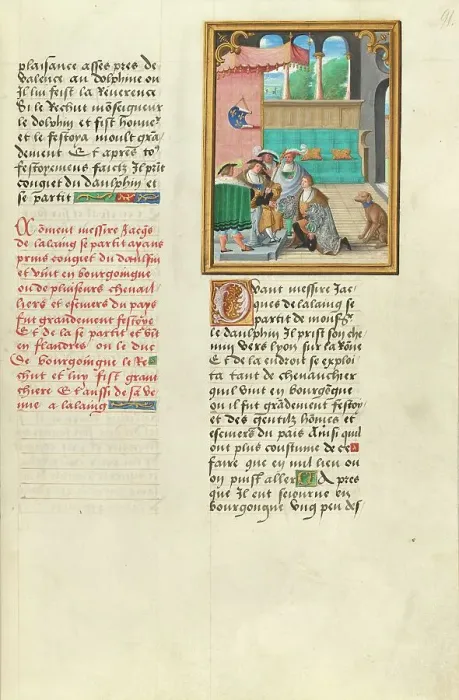 91.
plaisance asses pres de
valence au dolphine ou
Il luy feist la Reverence
Si le Rechut mōseigneur
le dolphin et fist honneʳ
et le festoya moult gra
dement Et apres to9
festoyemens faictz Il prit
conget du daulphin et
se partit
Cōment messire Jaeqs
de lalaing se partit ayans
prins conget du daulfin
et vint en bourgoingne
ou de pluiseurs chevail
liers et escuiers du pays
fut grandement festoye
Et de la se partit et vīt
en flandres ou le duc
de bourgoingne le Re
chut et luy fist grant
chiere Et aussi de sa ve
nue a lalaing
Quant messire Jac
ques de lalaing se
partit de monsʳ
le daulphin Il prist son che
min vers lyon sur la Rōne
Et de la endroit se exploi
ta tant de chevauchier
quil vint en bourgōgne
ou il fut grādement festoy
et des gentilz hōmes et
escuiers du pais Ainsi quil
ont plus coustume de ce
faire que en nul lieu ou
on puist aller Et A pres
que Il eut seiourne en
bourgongne ung peu des